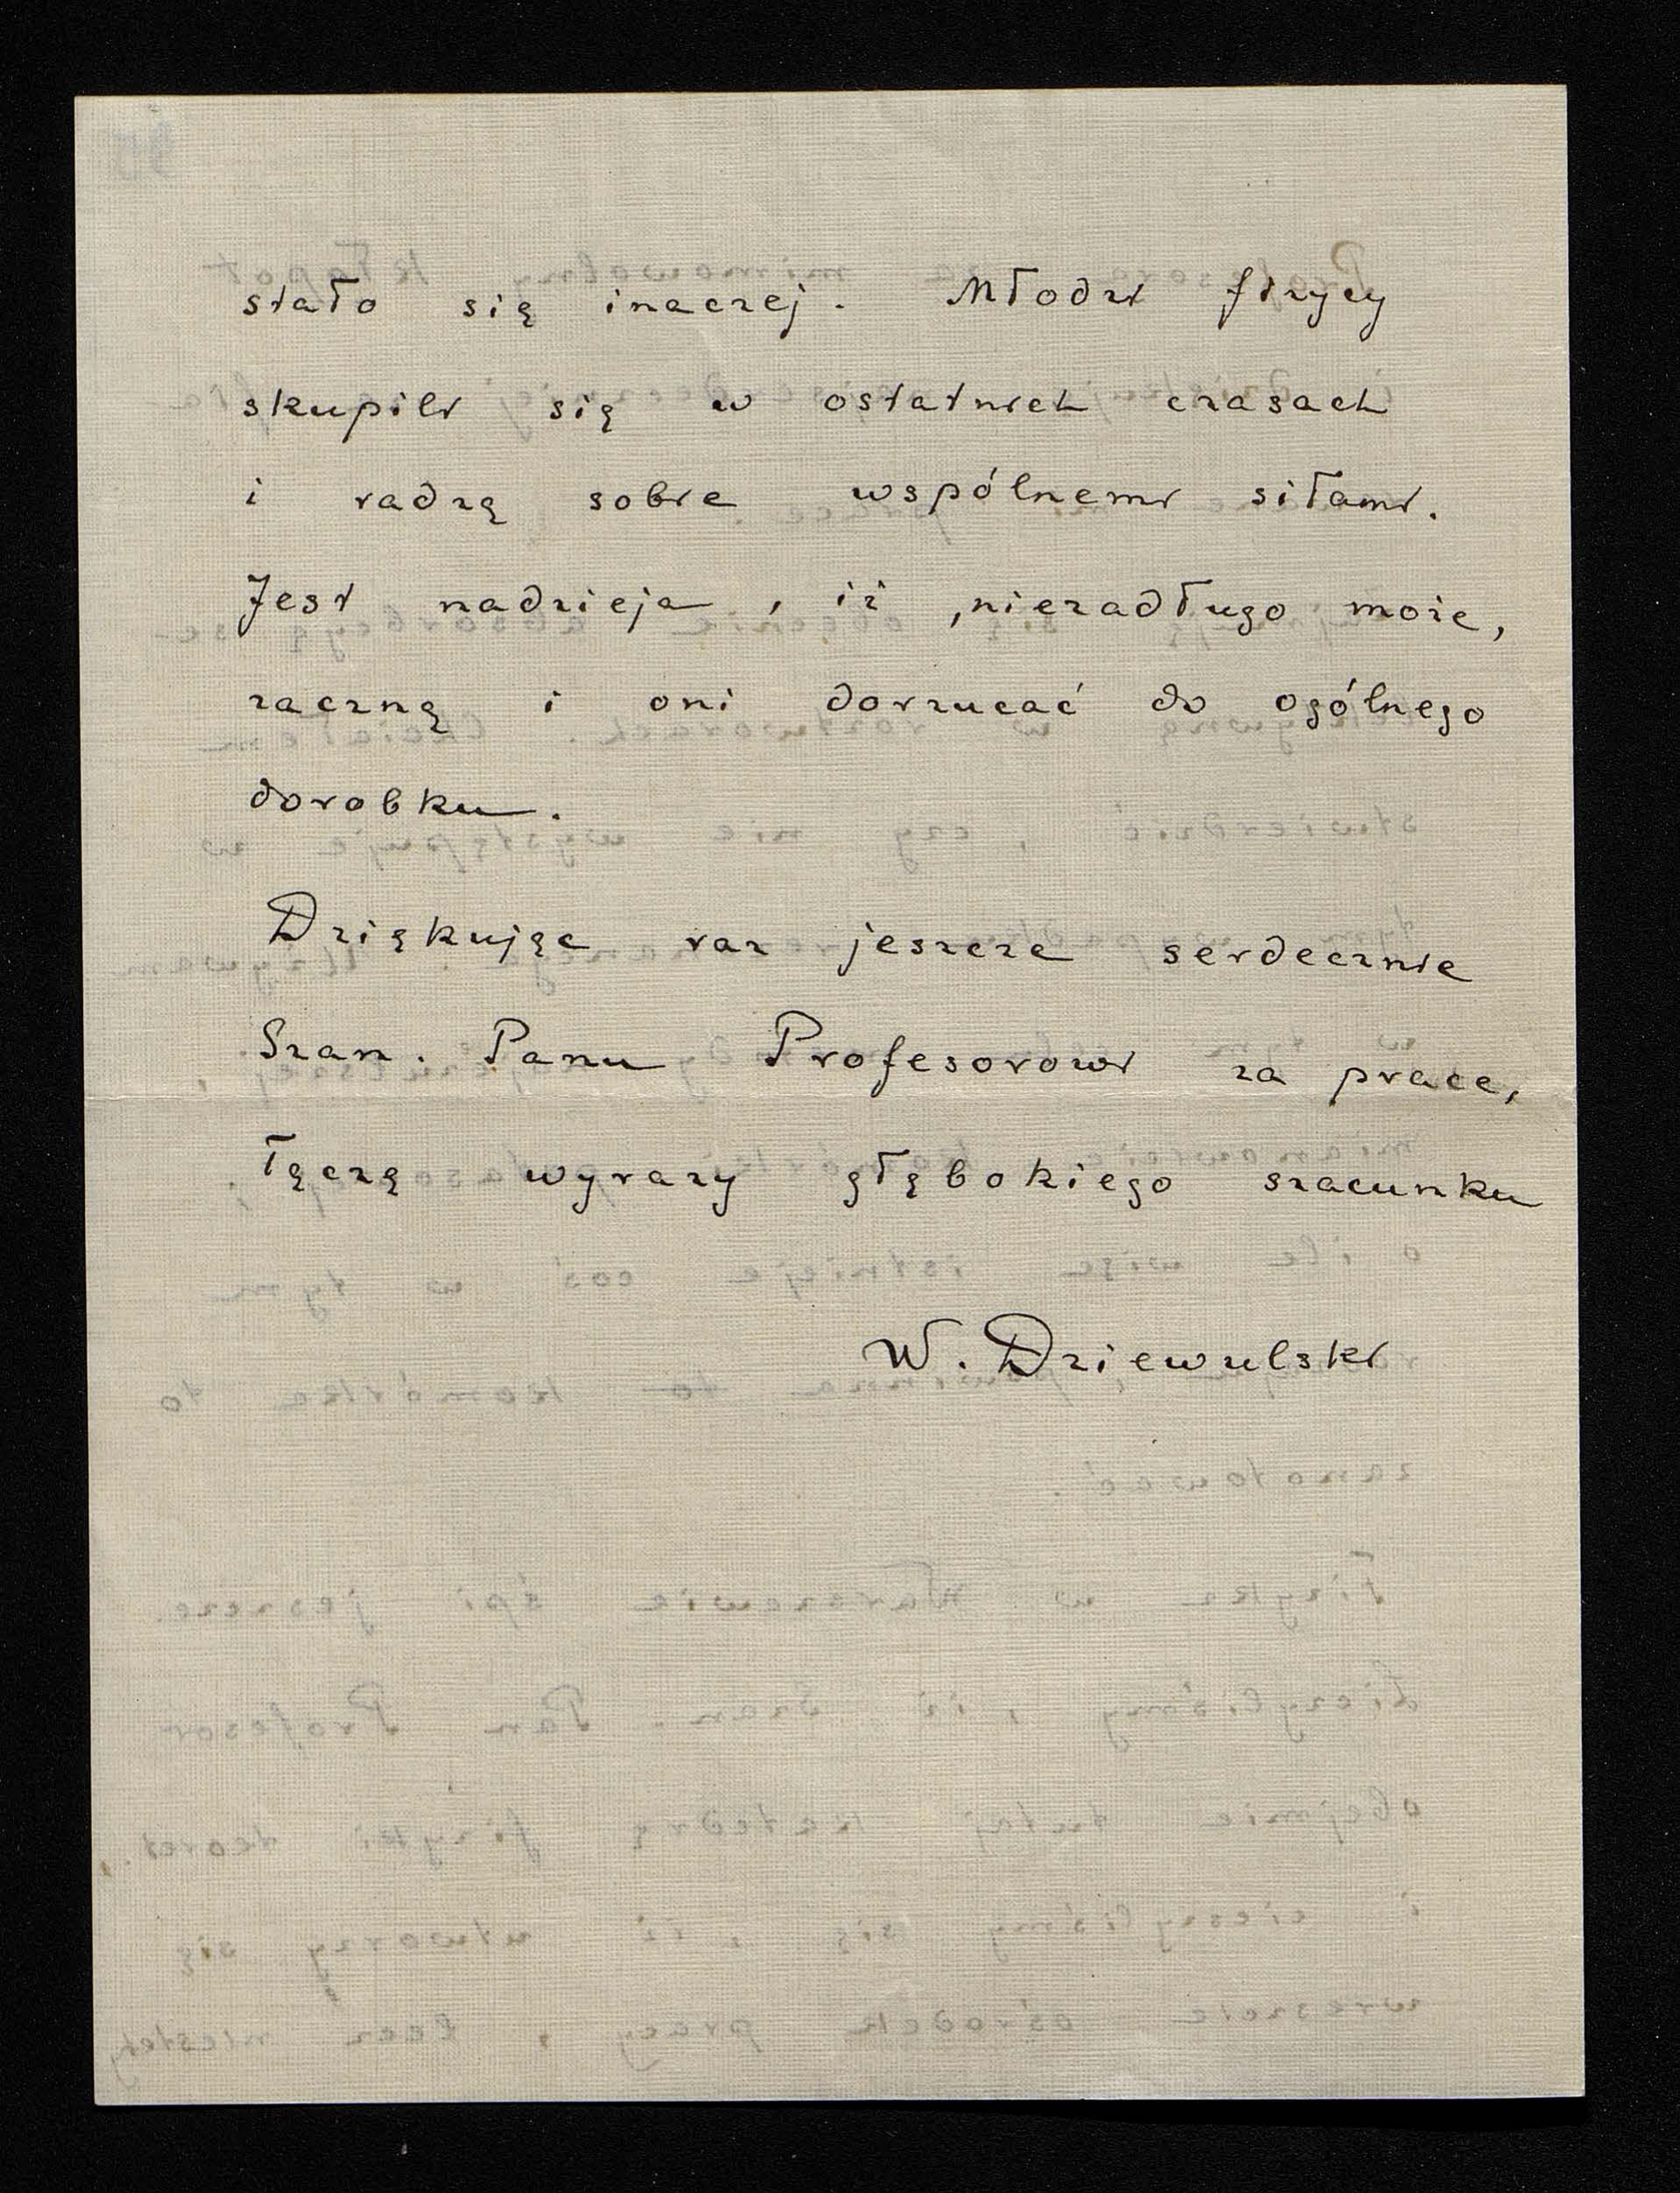 stało się inaczej. Młodzi fizycy
skupili się w ostatnich czasach
i radzą sobie wspólnemi siłami.
Jest nadzieja, iż, niezadługo może,
zaczną i oni dorzucać do ogólnego
dorobku.
Dziękując raz jeszcze serdecznie
Szan. Panu Profesorowi za prace,
łączę wyrazy głębokiego szacunku
W. Dziewulski